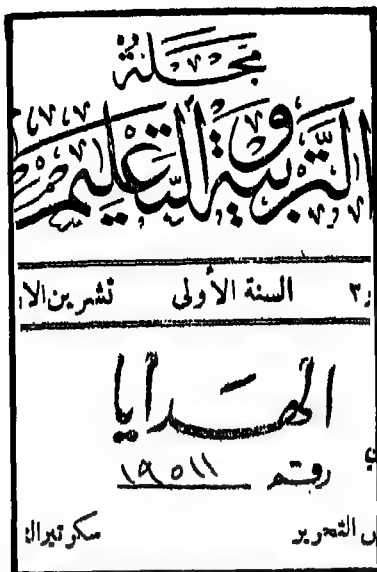 مجلة
التربية والتعليم
٣ السنة الأولى تشرين الا
الهدايا
رقم ١٩٥١١
التحرير سكرتير